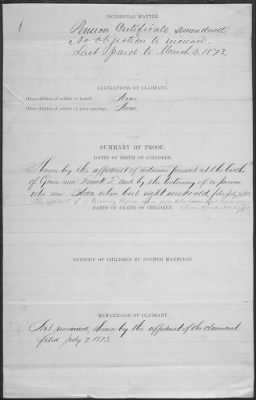 INCIDENTAL MATTER.
Pension Certificate surrendered
No objection to increase
Last paid to March 4, 1873.
ALLEGATIONS OF CLAIMANT.
Other children of soldier by benefit None
Other children of soldier by prior marriage, None
SUMMARY OF PROOF.
DATES OF BIRTH OF CHILDREN.
Shown by the affidavit of witness present at the birth
of Grace and Frank J. and by the testimony of a person
who saw when but eight weeks old, filed July 7/73
The affidavit of
DATES OF DEATH OF CHILDREN.
CUSTODY OF CHILDREN BY FORMER MARRIAGE.
REMARRIAGE OF CLAIMANT.
Not remarried, shown by the affidavit of the claimant
filed July 7, 1873.